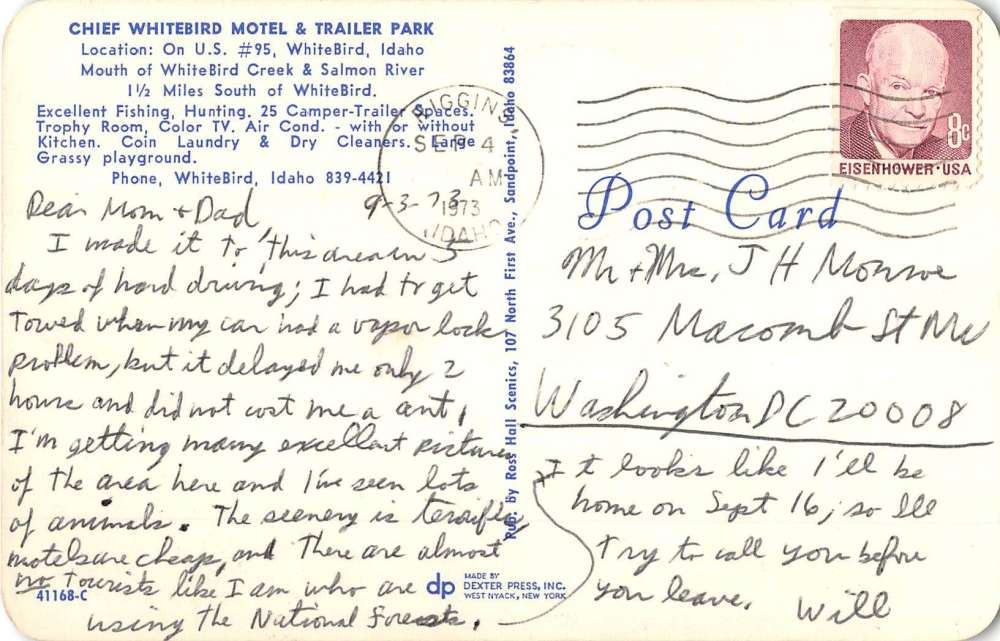 CHIEF WHITEBIRD MOTEL & TRAILER PARK
Location: On U.S. #95, WhiteBird, Idaho
Mouth of WhiteBird Creek & Salmon River
1½ Miles South of WhiteBird.
Excellent Fishing, Hunting. 25 Camper-Trailer Spaces.
Trophy Room, Color TV. Air Cond. - with or without
Kitchen. Coin Laundry & Dry Cleaners. Large
Grassy playground.
Phone, WhiteBird, Idaho 839-4421
9-3-73
Dear Mom + Dad,
I made it to this area in 5
days of hard driving; I had to get
towed when my car had a vapor lock
problem, but it delayed me only 2
hours and did not cost me a cent.
I'm getting many excellent pictures
of the area here and I've seen lots
of animals. The scenery is terrific,
motels are cheap, and there are almost
no tourists like I am who are
using the National Forests.
It looks like I'll be
home on Sept 16, so Ill
try to call you before
you leave. Will
41168-C
dp
MADE BY
DEXTER PRESS, INC.
WEST NYACK, NEW YORK
Pub. by Ross Hall Scenics, 107 North First Ave., Sandpoint, Idaho 83864
RIGGINS
SEP 4
AM
1973
IDAHO
8c
EISENHOWER·USA
Post Card
Mr + Mrs, J H Monroe
3105 Macomb St NW
Washington DC 20008